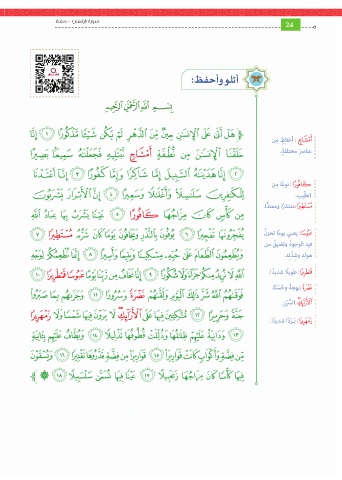 سورة الإنسان - حفظ
24
أتلو وأحفظ:
بِسْمِ اللَّهِ الرَّحْمَٰنِ الرَّحِيمِ
﴿ هَلْ أَتَىٰ عَلَى الْإِنسَٰنِ حِينٌ مِّنَ الدَّهْرِ لَمْ يَكُن شَيْـًٔا مَّذْكُورًا ١ إِنَّا
خَلَقْنَا الْإِنسَٰنَ مِن نُّطْفَةٍ أَمْشَاجٍ نَّبْتَلِيهِ فَجَعَلْنَٰهُ سَمِيعًۢا بَصِيرًا
٢ إِنَّا هَدَيْنَٰهُ السَّبِيلَ إِمَّا شَاكِرًا وَإِمَّا كَفُورًا ٣ إِنَّآ أَعْتَدْنَا
لِلْكَٰفِرِينَ سَلَٰسِلَا۟ وَأَغْلَٰلًا وَسَعِيرًا ٤ إِنَّ الْأَبْرَارَ يَشْرَبُونَ
مِن كَأْسٍ كَانَ مِزَاجُهَا كَافُورًا ٥ عَيْنًا يَشْرَبُ بِهَا عِبَادُ اللَّهِ
يُفَجِّرُونَهَا تَفْجِيرًا ٦ يُوفُونَ بِالنَّذْرِ وَيَخَافُونَ يَوْمًا كَانَ شَرُّهُۥ مُسْتَطِيرًا ٧
وَيُطْعِمُونَ الطَّعَامَ عَلَىٰ حُبِّهِۦ مِسْكِينًا وَيَتِيمًا وَأَسِيرًا ٨ إِنَّمَا نُطْعِمُكُمْ لِوَجْهِ
اللَّهِ لَا نُرِيدُ مِنكُمْ جَزَآءً وَلَا شُكُورًا ٩ إِنَّا نَخَافُ مِن رَّبِّنَا يَوْمًا عَبُوسًا قَمْطَرِيرًا ١٠
فَوَقَىٰهُمُ اللَّهُ شَرَّ ذَٰلِكَ الْيَوْمِ وَلَقَّىٰهُمْ نَضْرَةً وَسُرُورًا ١١ وَجَزَىٰهُم بِمَا صَبَرُوا۟
جَنَّةً وَحَرِيرًا ١٢ مُّتَّكِـِٔينَ فِيهَا عَلَى الْأَرَآئِكِ لَا يَرَوْنَ فِيهَا شَمْسًا وَلَا زَمْهَرِيرًا
١٣ وَدَانِيَةً عَلَيْهِمْ ظِلَٰلُهَا وَذُلِّلَتْ قُطُوفُهَا تَذْلِيلًا ١٤ وَيُطَافُ عَلَيْهِم بِـَٔانِيَةٍ
مِّن فِضَّةٍ وَأَكْوَابٍ كَانَتْ قَوَارِيرَا۠ ١٥ قَوَارِيرَا۟ مِن فِضَّةٍ قَدَّرُوهَا تَقْدِيرًا ١٦ وَيُسْقَوْنَ
فِيهَا كَأْسًا كَانَ مِزَاجُهَا زَنجَبِيلًا ١٧ عَيْنًا فِيهَا تُسَمَّىٰ سَلْسَبِيلًا ١٨ ﴾
أَمْشَاجٍ: أخلاط مِن
عناصر مختلفة.
كَافُورًا: نوعًا مِنَ
الطّيب.
مُسْتَطِيرًا: منتشرًا وممتدًّا.
عَبُوسًا:
قَمْطَرِيرًا: طويلًا شديدًا.
نَضْرَةً: بهجةً وحُسنًا.
الْأَرَآئِكِ: السُّرُر.
زَمْهَرِيرًا: بَردًا شديدًا.